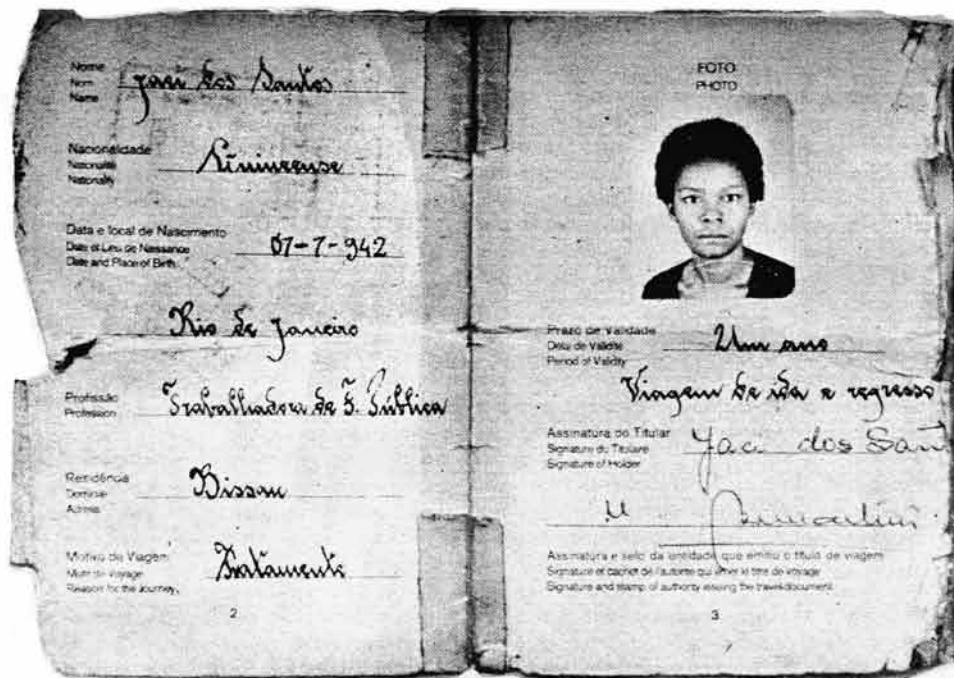 Nome
Nom
Name
Jaci dos Santos
Nacionalidade
Nationalité
Nationality
Data e local de Nascimento
Date et Lieu de Naissance
Date and Place of Birth
07-7-942
Rio de Janeiro
Profissão
Profession
Trabalhadora de F. Pública
Residência
Domicile
Bissau
Motivo da Viagem
Motif de Voyage
Reason for the Journey
Tratamento
2
FOTO
PHOTO
Prazo de Validade
Délai de Validité
Period of Validity
Um ano
Viagem de ida e regresso
Assinatura do Titular
Signature du Titulaire
Signature of Holder
Jaci dos San
Assinatura e selo da entidade que emitiu o título de viagem
Signature et cachet de l'autorité qui émet le titre de voyage
Signature and stamp of authority issuing the travel document
3